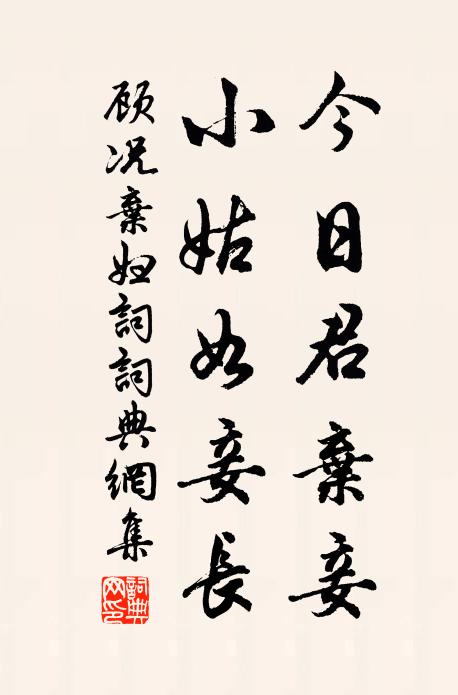 今日君棄妾
小姑如妾長
顾况棄婦詞詞典網集
詞典网印